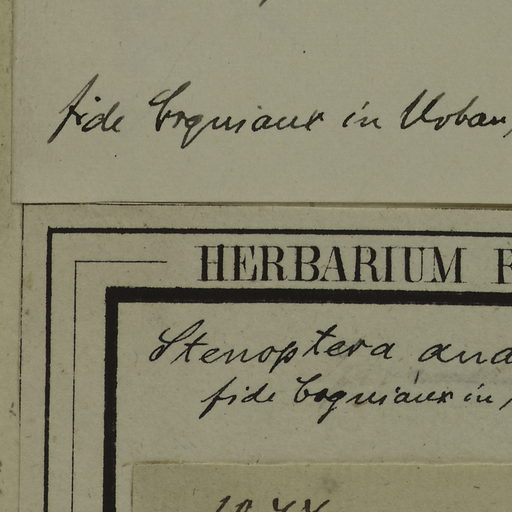 fide Cogniaux in Urban,
HERBARIUM
Stenoptera
fide Cogniaux in